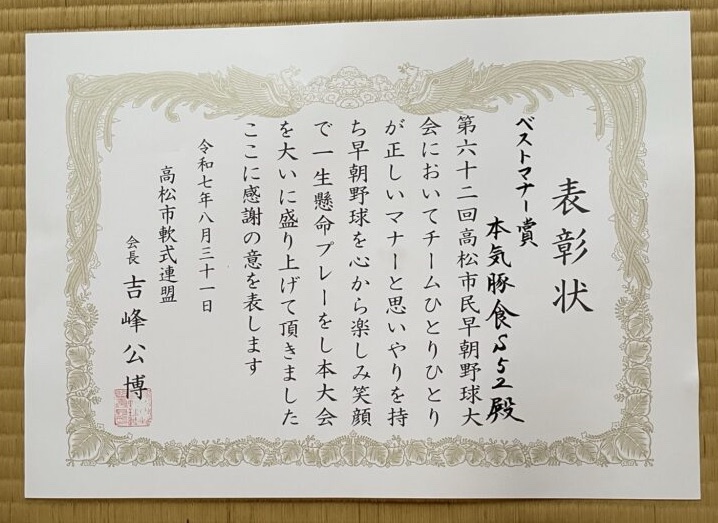 表彰状
ベストマナー賞
本気豚食S52殿
第六十二回高松市民早朝野球大
会においてチームひとりひとり
が正しいマナーと思いやりを持
ち早朝野球を心から楽しみ笑顔
で一生懸命プレーをし本大会
を大いに盛り上げて頂きました
ここに感謝の意を表します
令和七年八月三十一日
高松市軟式連盟
会長 吉峰公博